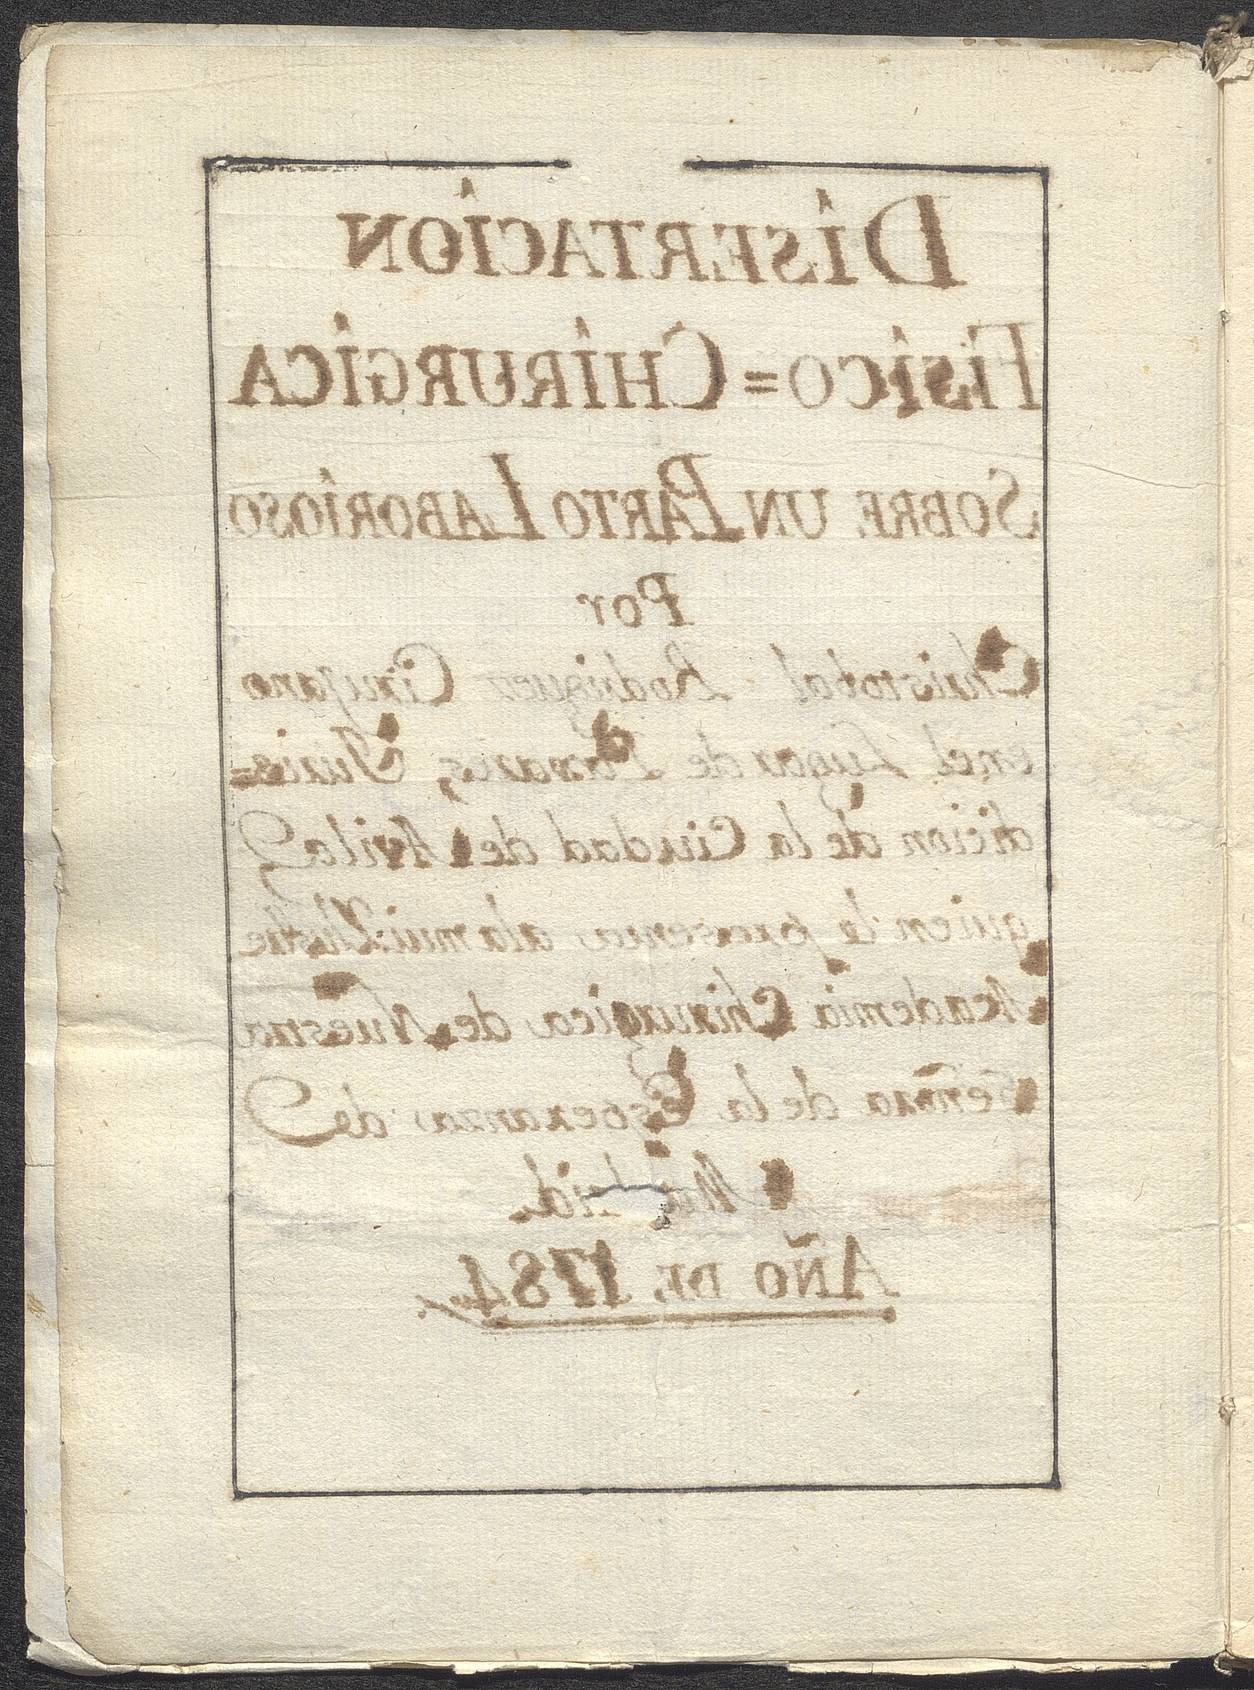 DISERTACION
FISICO = CHIRURGICA
SOBRE UN PARTO LABORIOSO
Por
Christobal Rodriguez Cirujano
en el Lugar de Juris=
dicion de la Ciudad de Avila
quien la presenta a la mui Illustre
Academia Chirurgica de Nuestra
Señora de la Esperanza de
Madrid.
AÑO DE 1784